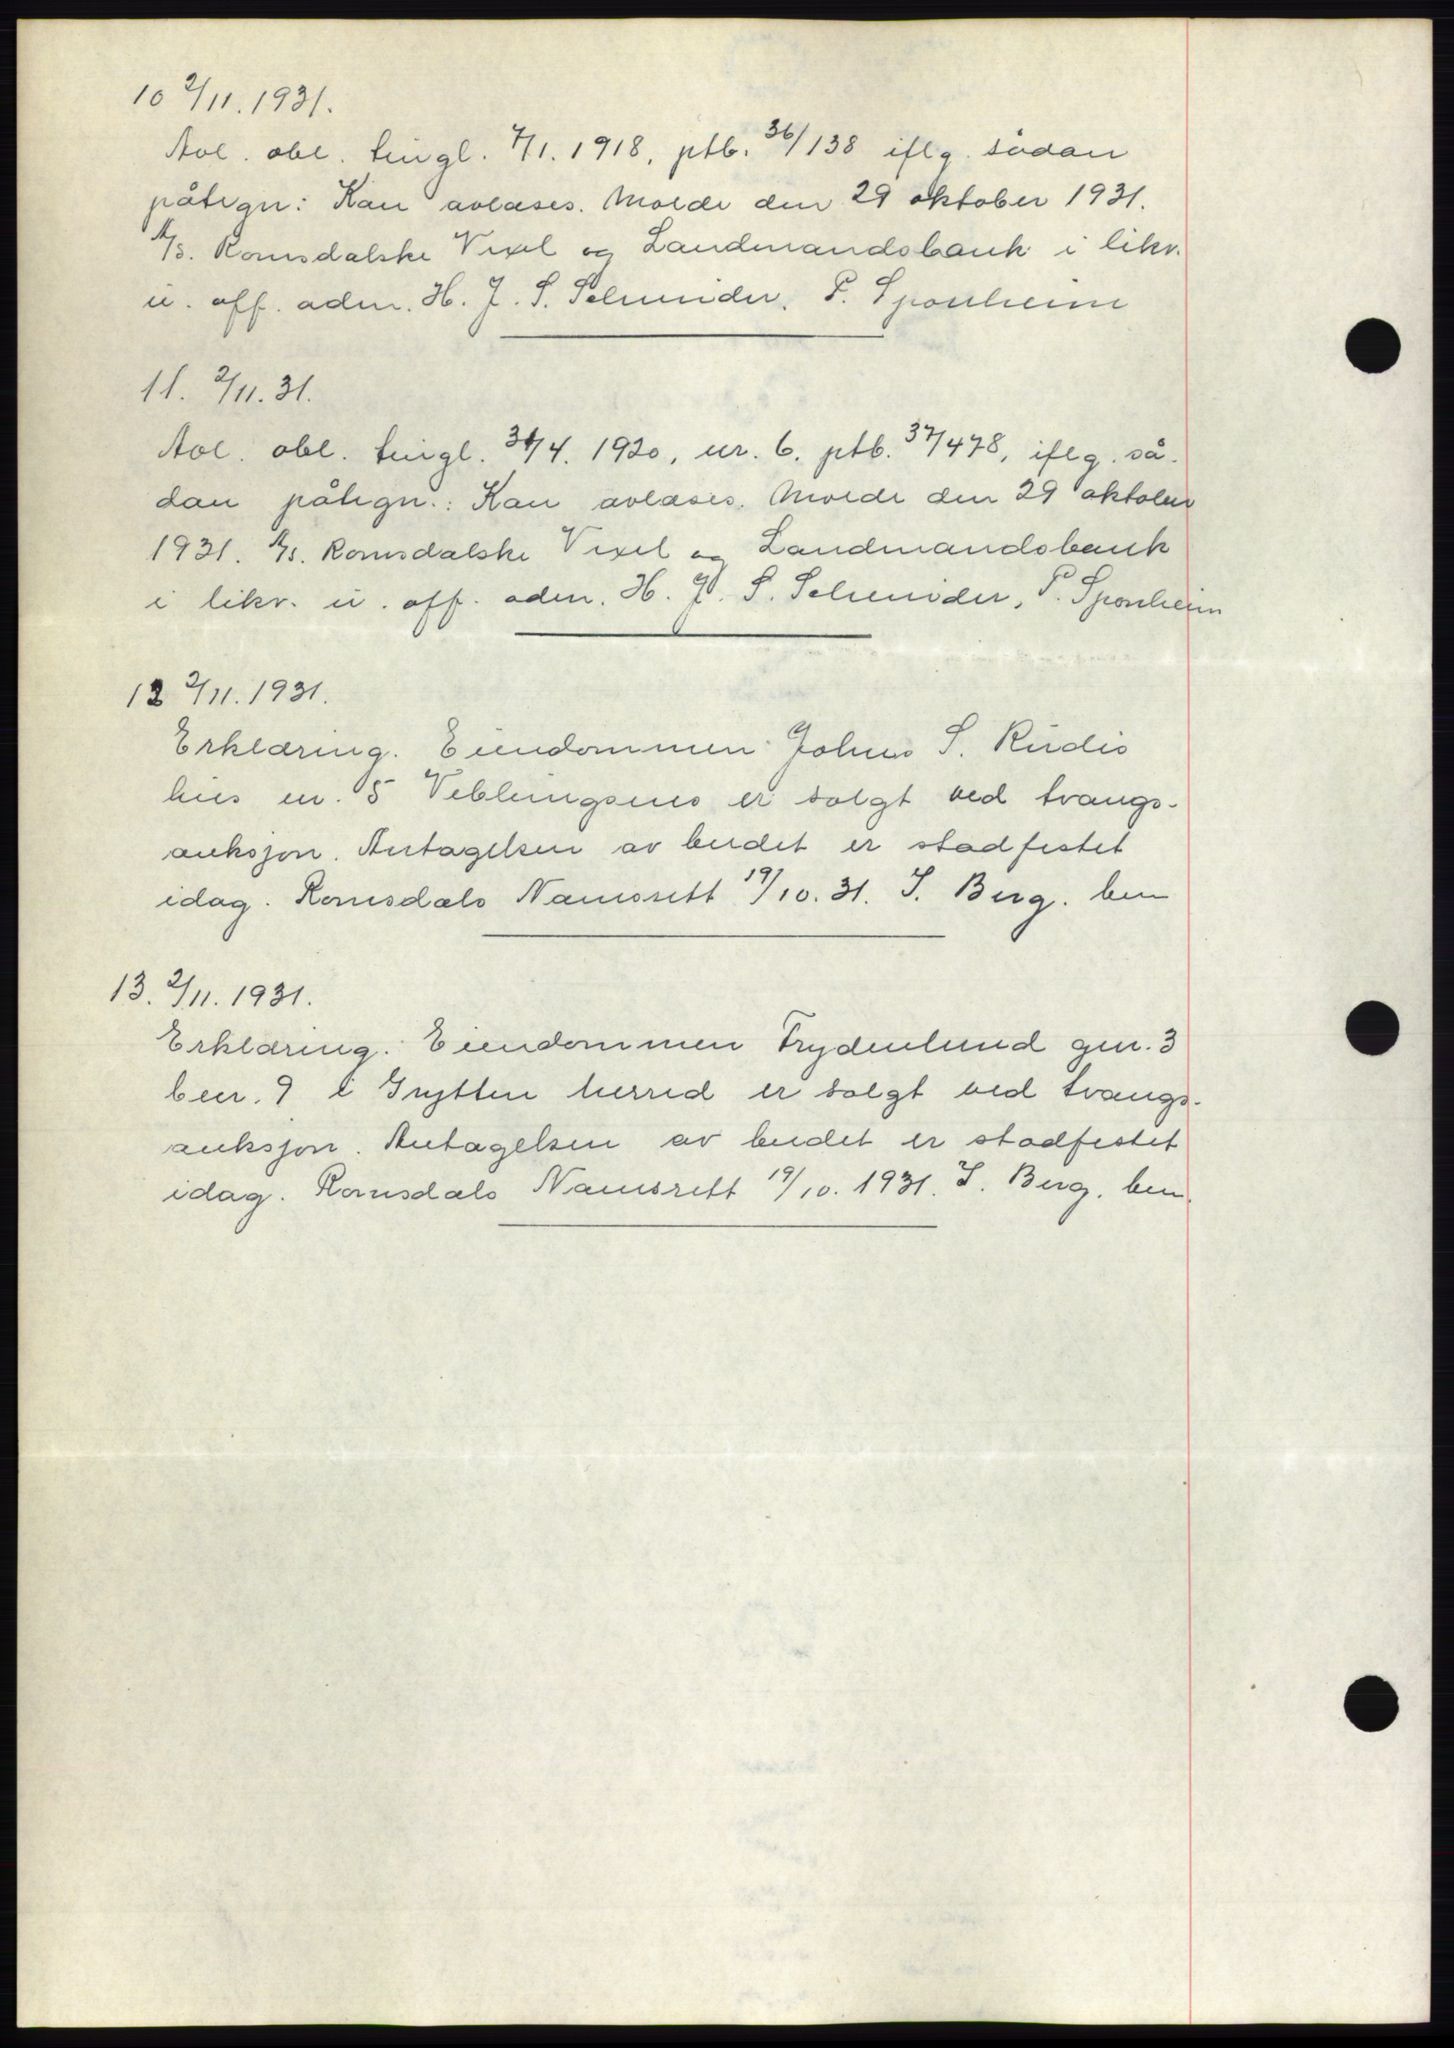 10 2/11. 1931.
Avl. obl. tingl. 7/1. 1918, ptb. 36/138 iflg. sådan
påtegn: Kan avlæses. Molde den 29 oktober 1931.
A/S. Romsdalske Vexel og Landmandsbank i likv.
u. off. adm. H. J. S. Schmider. P. Sponheim
11. 2/11. 31.
Avl. obl. tingl. /4. 1920, nr. 6. ptb. 37/478, iflg. så-
dan påtegn.: Kan avlæses. Molde den 29 oktober
1931. A/S. Romsdalske Vexel og Landmandsbank
i likv. u. off. adm. H. J. S. Schmider, P. Sponheim
12 2/11. 1931.
Erklæring. Eiendommen Johns S.
hus nr. 5 Veblungsnes er solgt ved tvangs-
auksjon. Antagelsen av budet er stadfestet
idag. Romsdals Namsrett 19/10. 31. I. Berg. bem
13. 2/11. 1931.
Erklæring. Eiendommen Frydenlund gnr. 3
bnr. 9 i Grytten herred er solgt ved tvangs-
auksjon. Antagelsen av budet er stadfestet
idag. Romsdals Namsrett 19/10. 1931. I. Berg. bem.